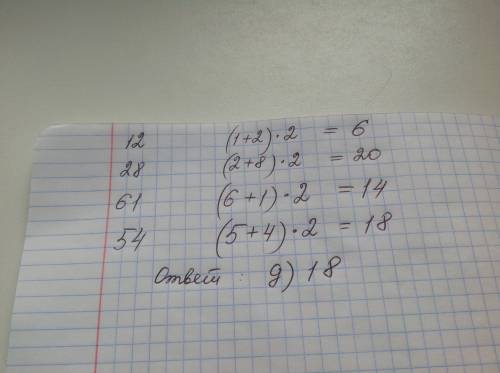 12 (1+2)·2 = 6
28 (2+8)·2 = 20
61 (6+1)·2 = 14
54 (5+4)·2 = 18
Ответ : д) 18